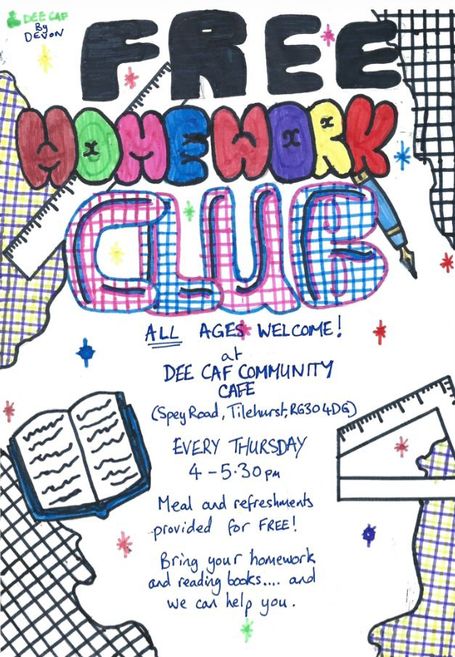 DEE CAF
By
DEVON
FREE
HOMEWORK
CLUB
ALL AGES WELCOME!
at
DEE CAF COMMUNITY
CAFE
(Spey Road, Tilehurst, RG30 4DG)
EVERY THURSDAY
4-5.30pm
Meal and refreshments
provided for FREE!
Bring your homework
and reading books.... and
we can help you.